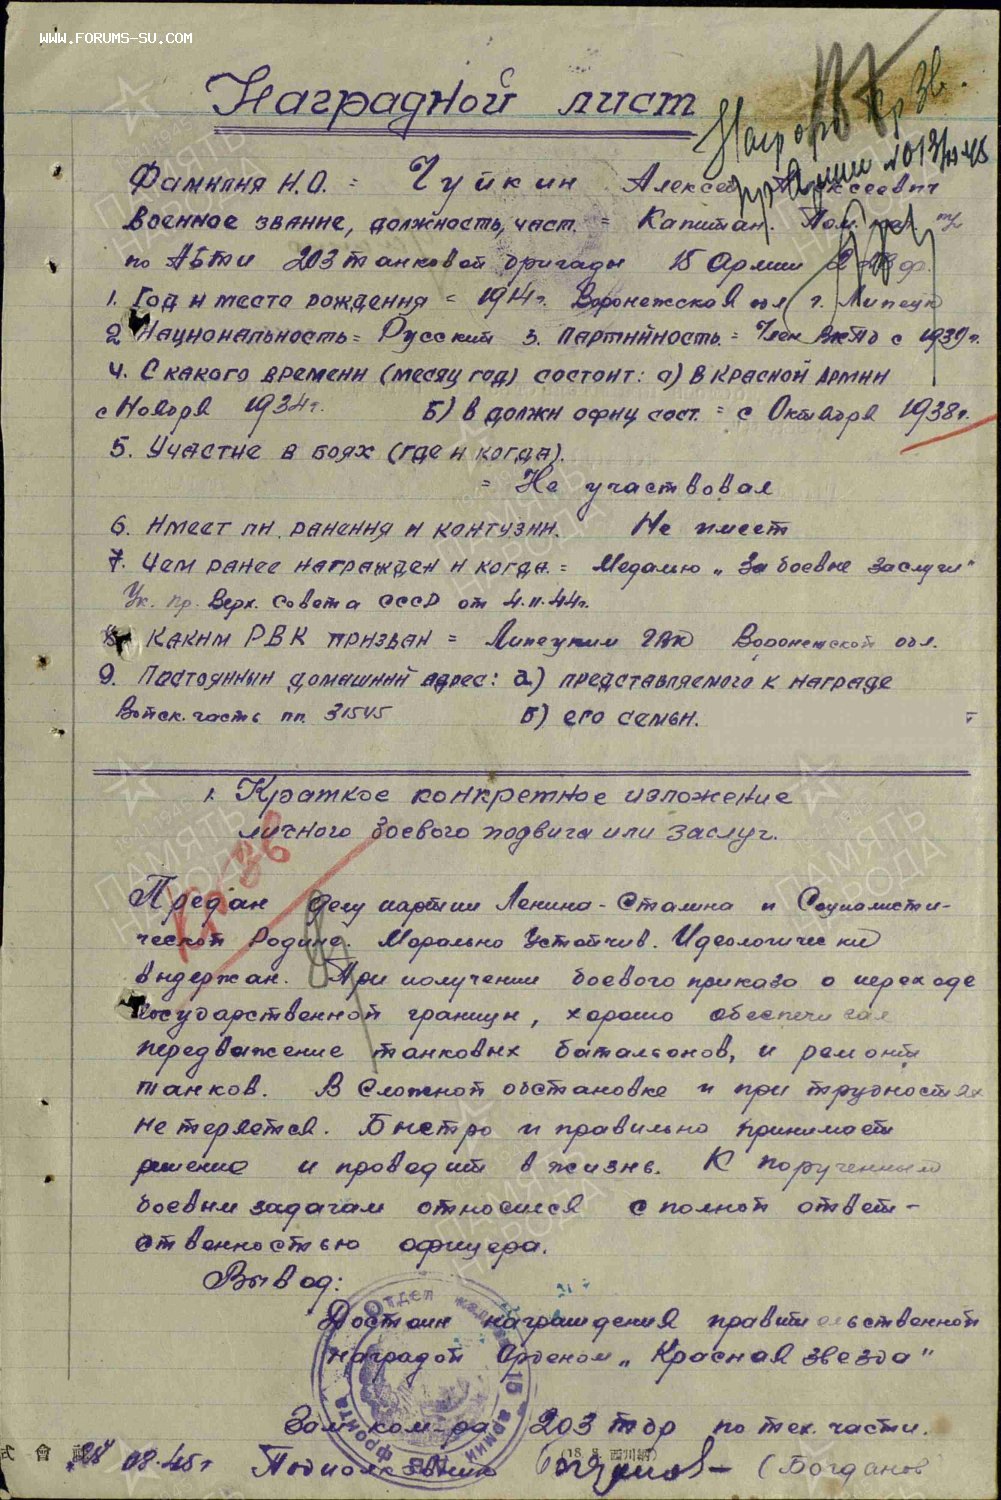 WWW.FORUMS-SU.COM
Наградной лист
Фамилия И.О. = Чуйкин Алексей Алексеевич
Военное звание, должность, част. = Капитан. Пом.
по АБТИ 203 танковой бригады 15 Армии 2 ДВФ.
1. Год и место рождения = 1914г. Воронежской обл г. Липецк
2 Национальность = Русский 3. Партийность = Член ВКПб с 1939г.
4. С какого времени (месяц год) состоит: а) в Красной Армии
с Ноября 1934г. Б) в должн офиц сост. = с Октября 1938г.
5. Участие в боях (где и когда).
= Не участвовал
6. Имеет ли ранения и контузии. Не имеет
7. Чем ранее награжден и когда = Медалью „За боевые заслуги"
Ук. пр. Верх. Совета СССР от 4.11.44г.
8 Каким РВК призван = Липецким ГВК Воронежской обл.
9. Постоянный домашний адрес: а) представляемого к награде
Войск. часть пп. 31545 Б) его семьи.
1. Краткое конкретное изложение
личного боевого подвига или заслуг.
Кр Зв
Предан делу партии Ленина-Сталина и Социалисти-
ческой Родине. Морально устойчив. Идеологически
выдержан. При получении боевого приказа о переходе
государственной границы, хорошо обеспечивал
передвижение танковых батальонов, и ремонт
танков. В сложной обстановке и при трудностях
не теряется. Быстро и правильно принимает
решение и проводит в жизнь. К порученным
боевым задачам относился с полной ответ-
ственностью офицера.
Вывод:
Достоин награждения правительственной
наградой Орденом „Красная звезда"
Зам ком-ра 203 тбр по тех. части.
24 08.45г Подполковник (Богданов